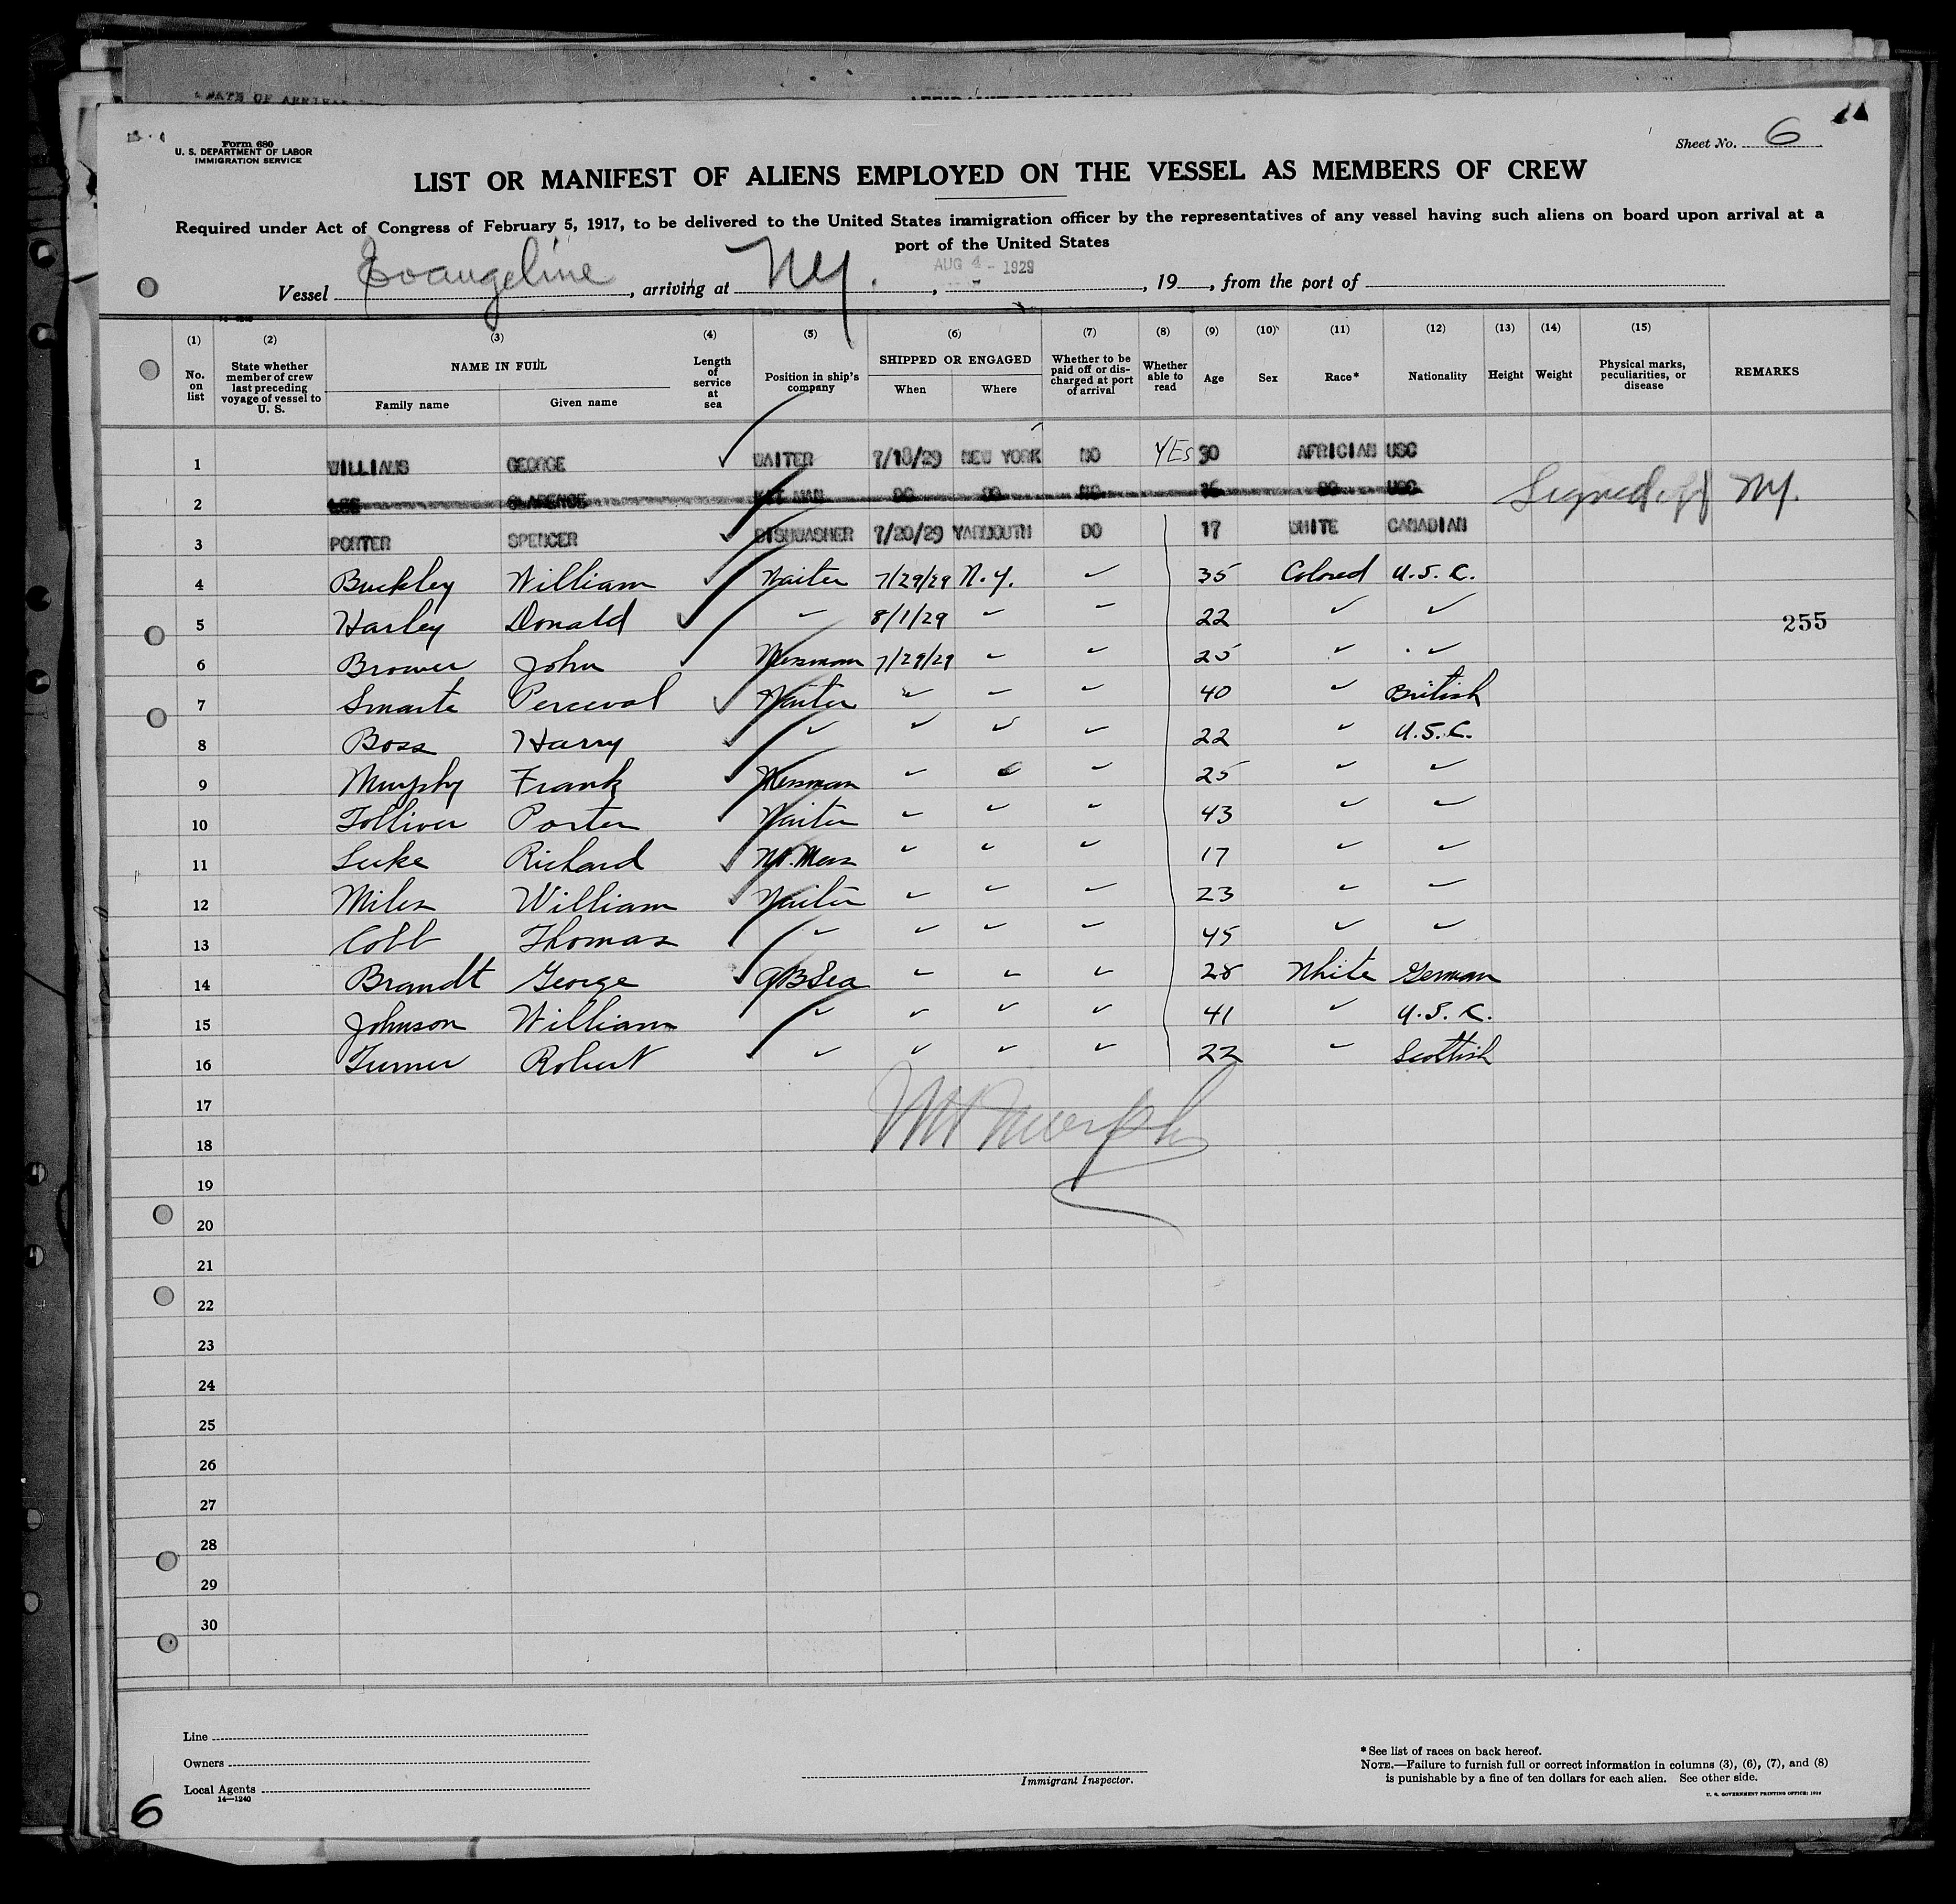 DATE OF ARRIVAL
Form 680
U. S. DEPARTMENT OF LABOR
IMMIGRATION SERVICE
Sheet No. 6
LIST OR MANIFEST OF ALIENS EMPLOYED ON THE VESSEL AS MEMBERS OF CREW
Required under Act of Congress of February 5, 1917, to be delivered to the United States immigration officer by the representatives of any vessel having such aliens on board upon arrival at a
port of the United States
Vessel Evangeline, arriving at N.Y., AUG 4 - 1929, 19, from the port of
(1) (2) (3) (4) (5) (6) (7) (8) (9) (10) (11) (12) (13) (14) (15)
No. on list State whether member of crew last preceding voyage of vessel to U. S. NAME IN FULL Family name Given name Length of service at sea Position in ship's company SHIPPED OR ENGAGED When Where Whether to be paid off or discharged at port of arrival Whether able to read Age Sex Race* Nationality Height Weight Physical marks, peculiarities, or disease REMARKS
1 WILLIAMS GEORGE ✓ WAITER 7/18/29 NEW YORK NO YES 30 AFRICIAN USC
2 LEE CLARENCE DO DO NO DO USC Signed off N.Y.
3 PORTER SPENCER ✓ DISHWASHER 7/20/29 YARMOUTH DO 17 WHITE CANADIAN
4 Buckley William ✓ Waiter 7/29/29 N.Y. ✓ 35 Colored U.S.C.
5 Harley Donald ✓ ✓ 8/1/29 ✓ ✓ 22 ✓ ✓
255
6 Brower John ✓ Messman 7/29/29 ✓ ✓ 25 ✓ ✓
7 Smarte Perceval ✓ Waiter ✓ ✓ ✓ 40 ✓ British
8 Boss Harry ✓ ✓ ✓ ✓ ✓ 22 ✓ U.S.C.
9 Murphy Frank ✓ Messman ✓ ✓ ✓ 25 ✓ ✓
10 Tolliver Porter ✓ Waiter ✓ ✓ ✓ 43 ✓ ✓
11 Luke Richard ✓ Mess ✓ ✓ ✓ 17 ✓ ✓
12 Miles William ✓ Waiter ✓ ✓ ✓ 23 ✓ ✓
13 Cobb Thomas ✓ ✓ ✓ ✓ ✓ 45 ✓ ✓
14 Brandt George ✓ AB Sea ✓ ✓ ✓ 28 White German
15 Johnson William ✓ ✓ ✓ ✓ 41 ✓ U.S.C.
16 Turner Robert ✓ ✓ ✓ ✓ ✓ 22 ✓ Scottish
17
Murphy
18
19
20
21
22
23
24
25
26
27
28
29
30
Line
Owners
Local Agents
14—1240
Immigrant Inspector.
* See list of races on back hereof.
NOTE.—Failure to furnish full or correct information in columns (3), (6), (7), and (8)
is punishable by a fine of ten dollars for each alien. See other side.
U. S. GOVERNMENT PRINTING OFFICE: 1929
6